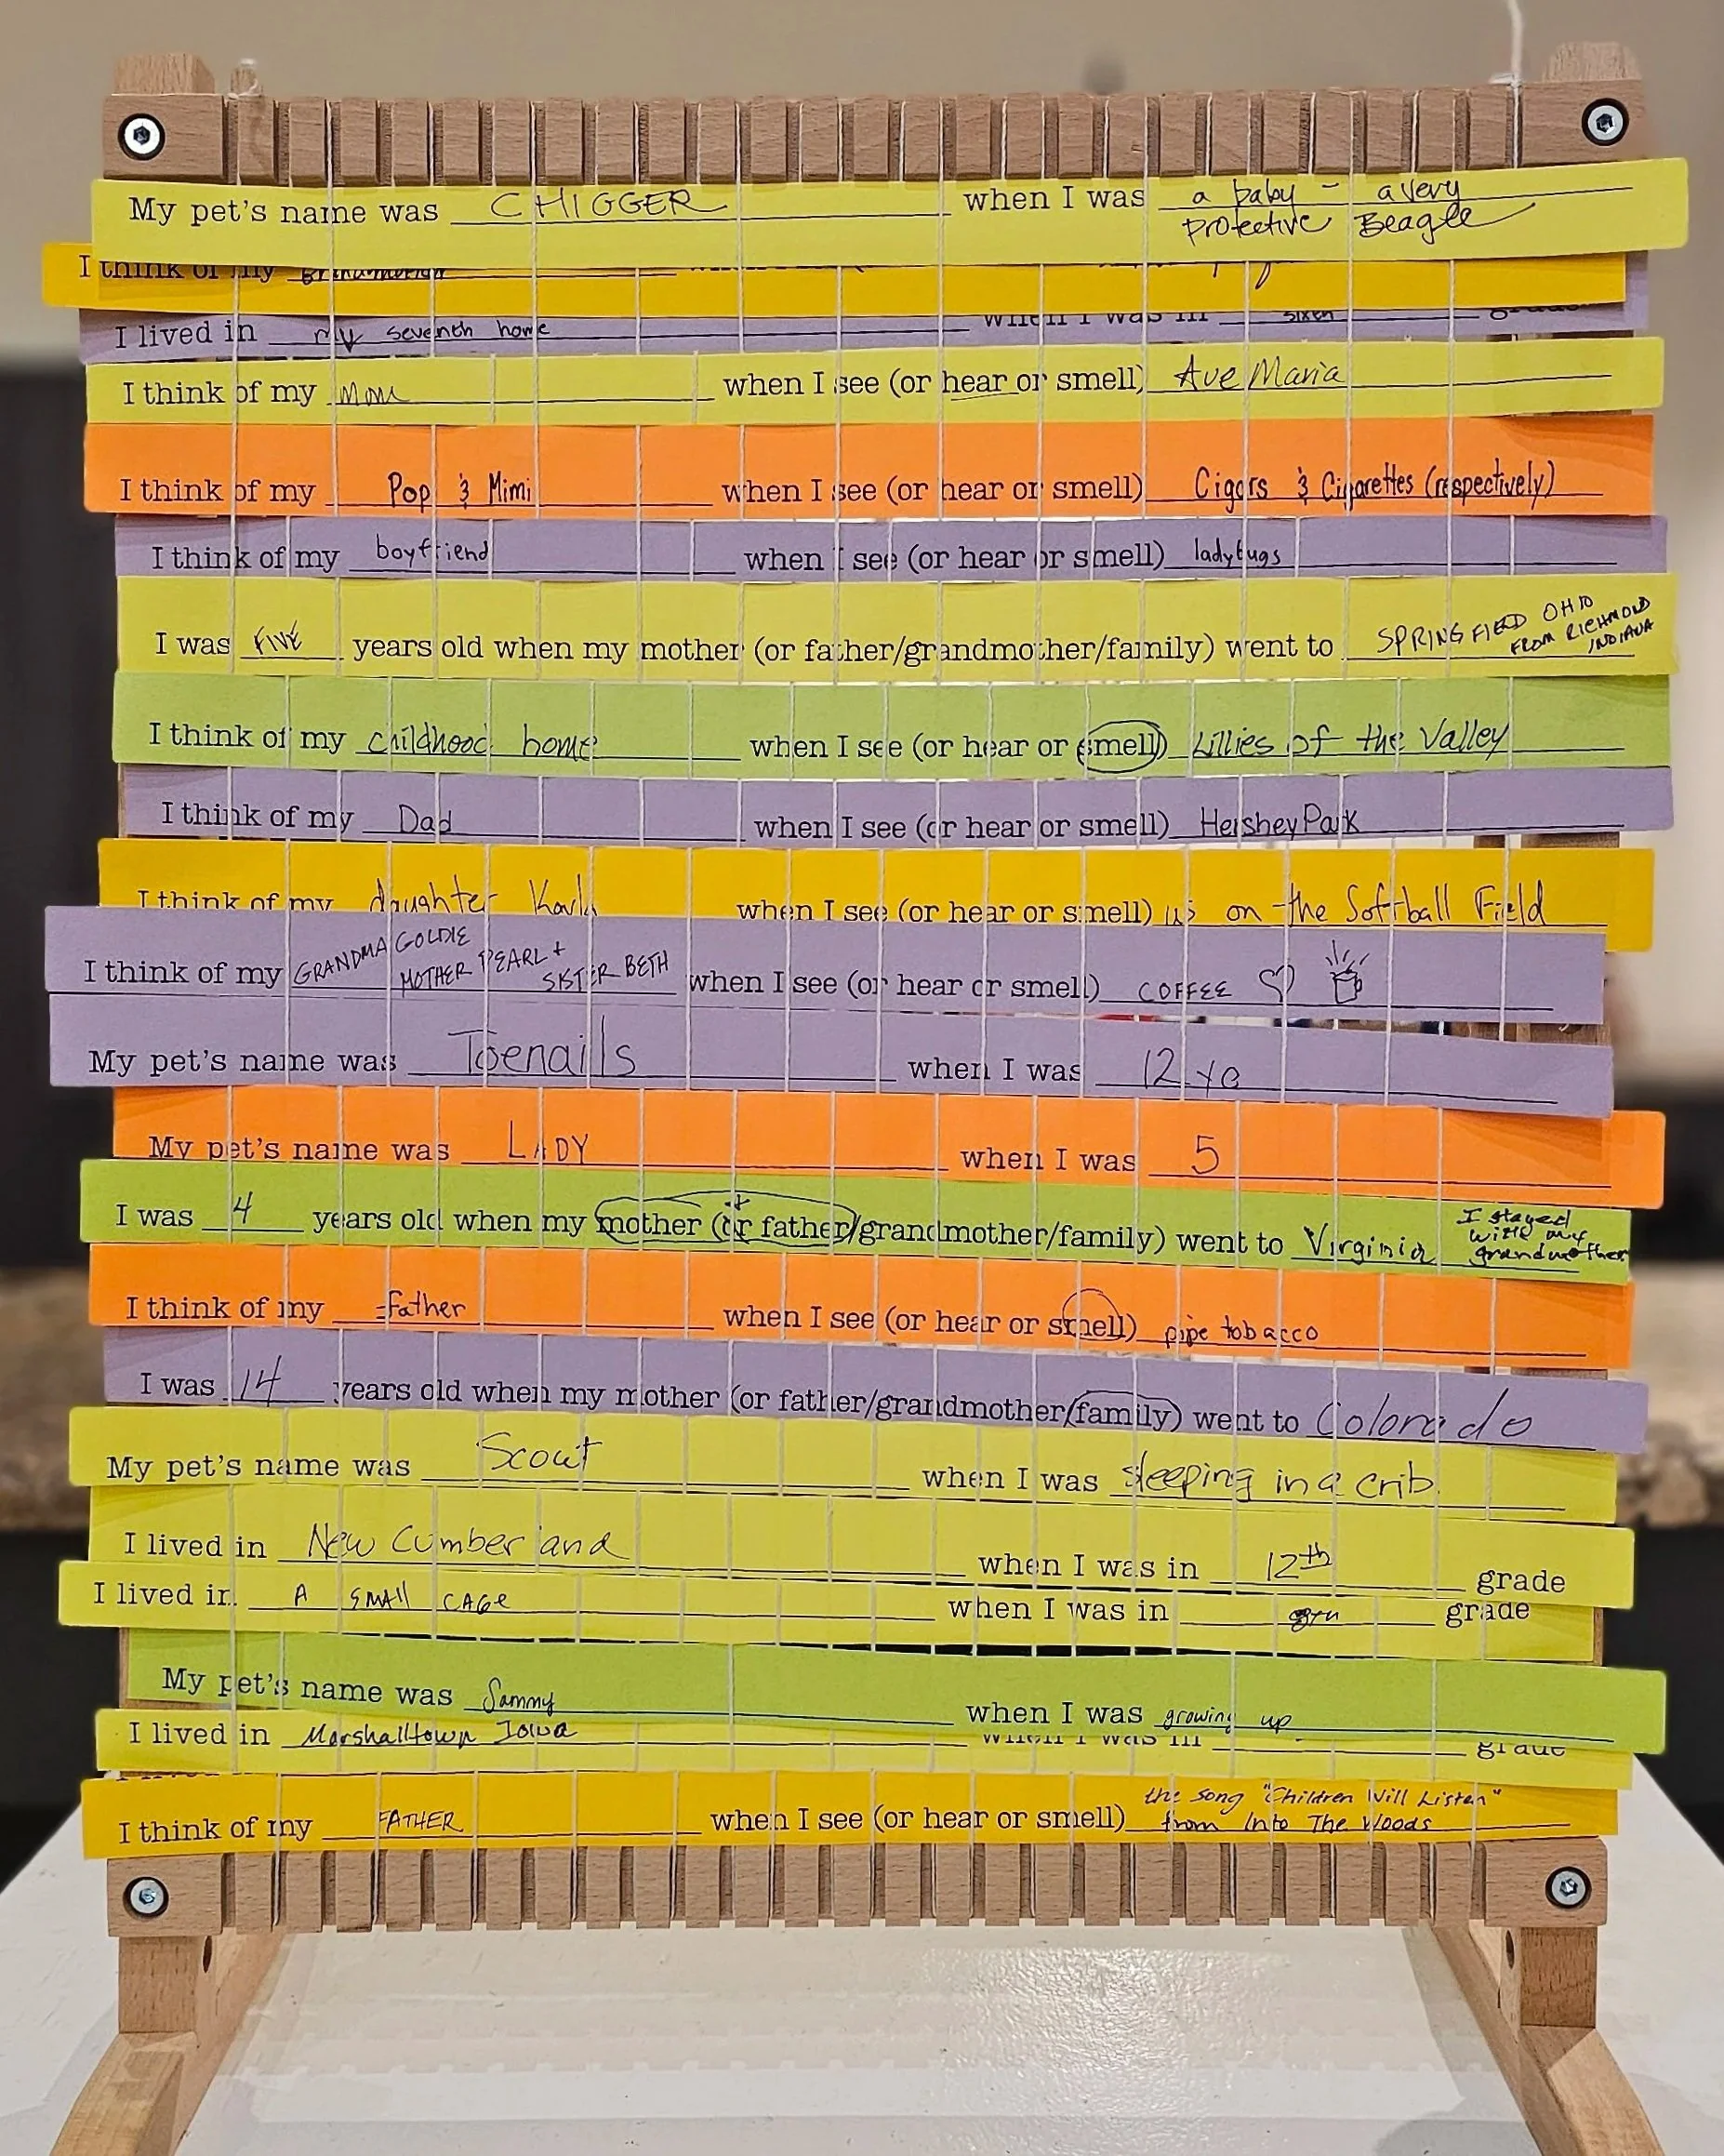 My pet's name was CHIGGER when I was a baby - a very
protective Beagle
I think of my grandmother
I lived in my seventh home when I was in sixth grade
I think of my Mom when I see (or hear or smell) Ave Maria
I think of my Pop & Mimi when I see (or hear or smell) Cigars & Cigarettes (respectively)
I think of my boyfriend when I see (or hear or smell) ladybugs
I was FIVE years old when my mother (or father/grandmother/family) went to SPRINGFIELD OHIO
FROM RICHMOND
INDIANA
I think of my childhood home when I see (or hear or smell) Lillies of the Valley
I think of my Dad when I see (or hear or smell) Hershey Park
I think of my daughter when I see (or hear or smell) us on the Softball Field
I think of my GRANDMA GOLDIE
MOTHER PEARL +
SISTER BETH when I see (or hear or smell) COFFEE
My pet's name was Toenails when I was 12 yo
My pet's name was LADY when I was 5
I was 4 years old when my mother (or + father/grandmother/family) went to Virginia I stayed
with my
grandmother
I think of my father when I see (or hear or smell) pipe tobacco
I was 14 years old when my mother (or father/grandmother/family) went to Colorado
My pet's name was Scout when I was sleeping in a crib.
I lived in New Cumberland when I was in 12th grade
I lived in A SMALL CAGE when I was in grade
My pet's name was Sammy when I was growing up
I lived in Marshalltown Iowa when I was in grade
I think of my FATHER when I see (or hear or smell) the song "Children Will Listen"
from Into The Woods